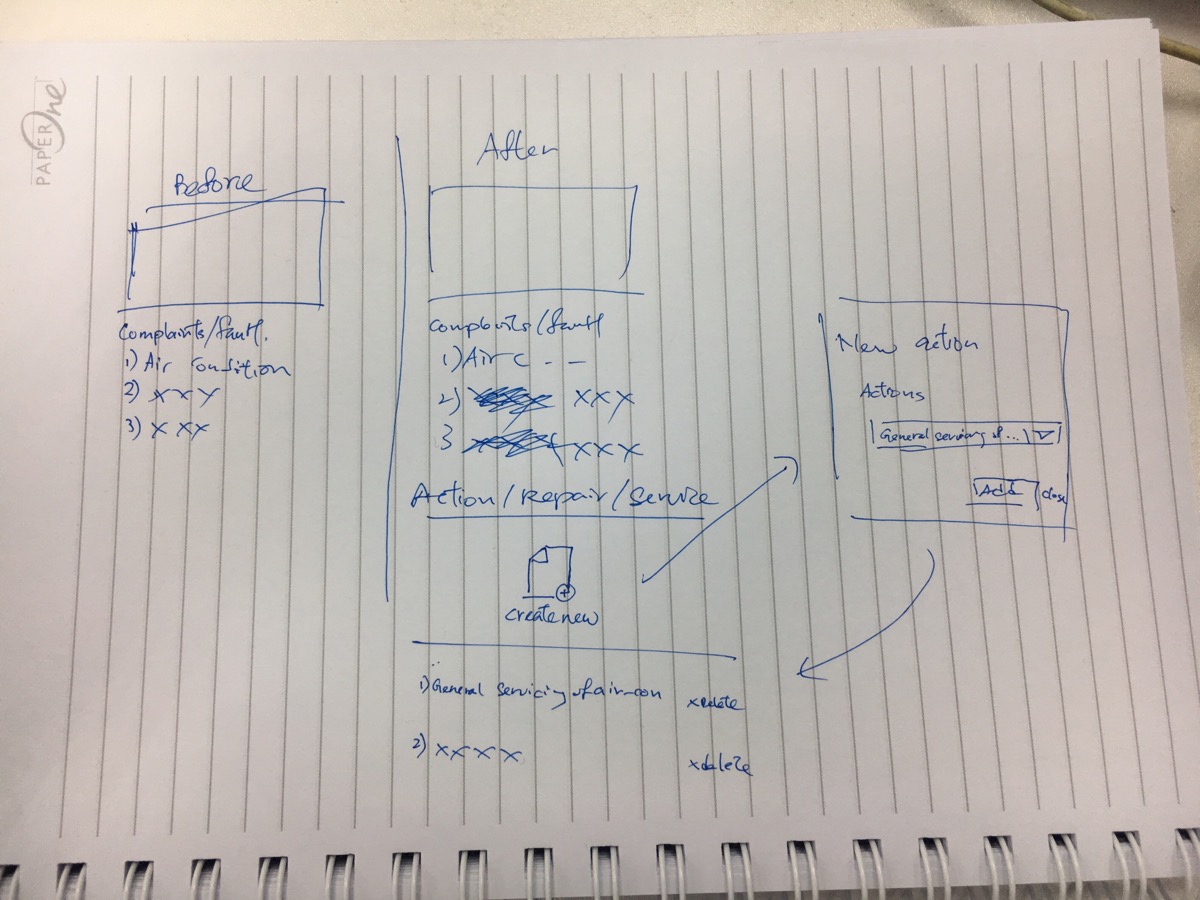 PAPER One
Before
Complaints/fault.
1) Air Condition
2) x x y
3) x xx
After
Complaints/fault
1) Air C - -
2) xxx
3 xxx
Action/Repair/Service
create new
1) General servicing of air-con x delete
2) xxxx x delete
New action
Actions
General servicing of...
Add close